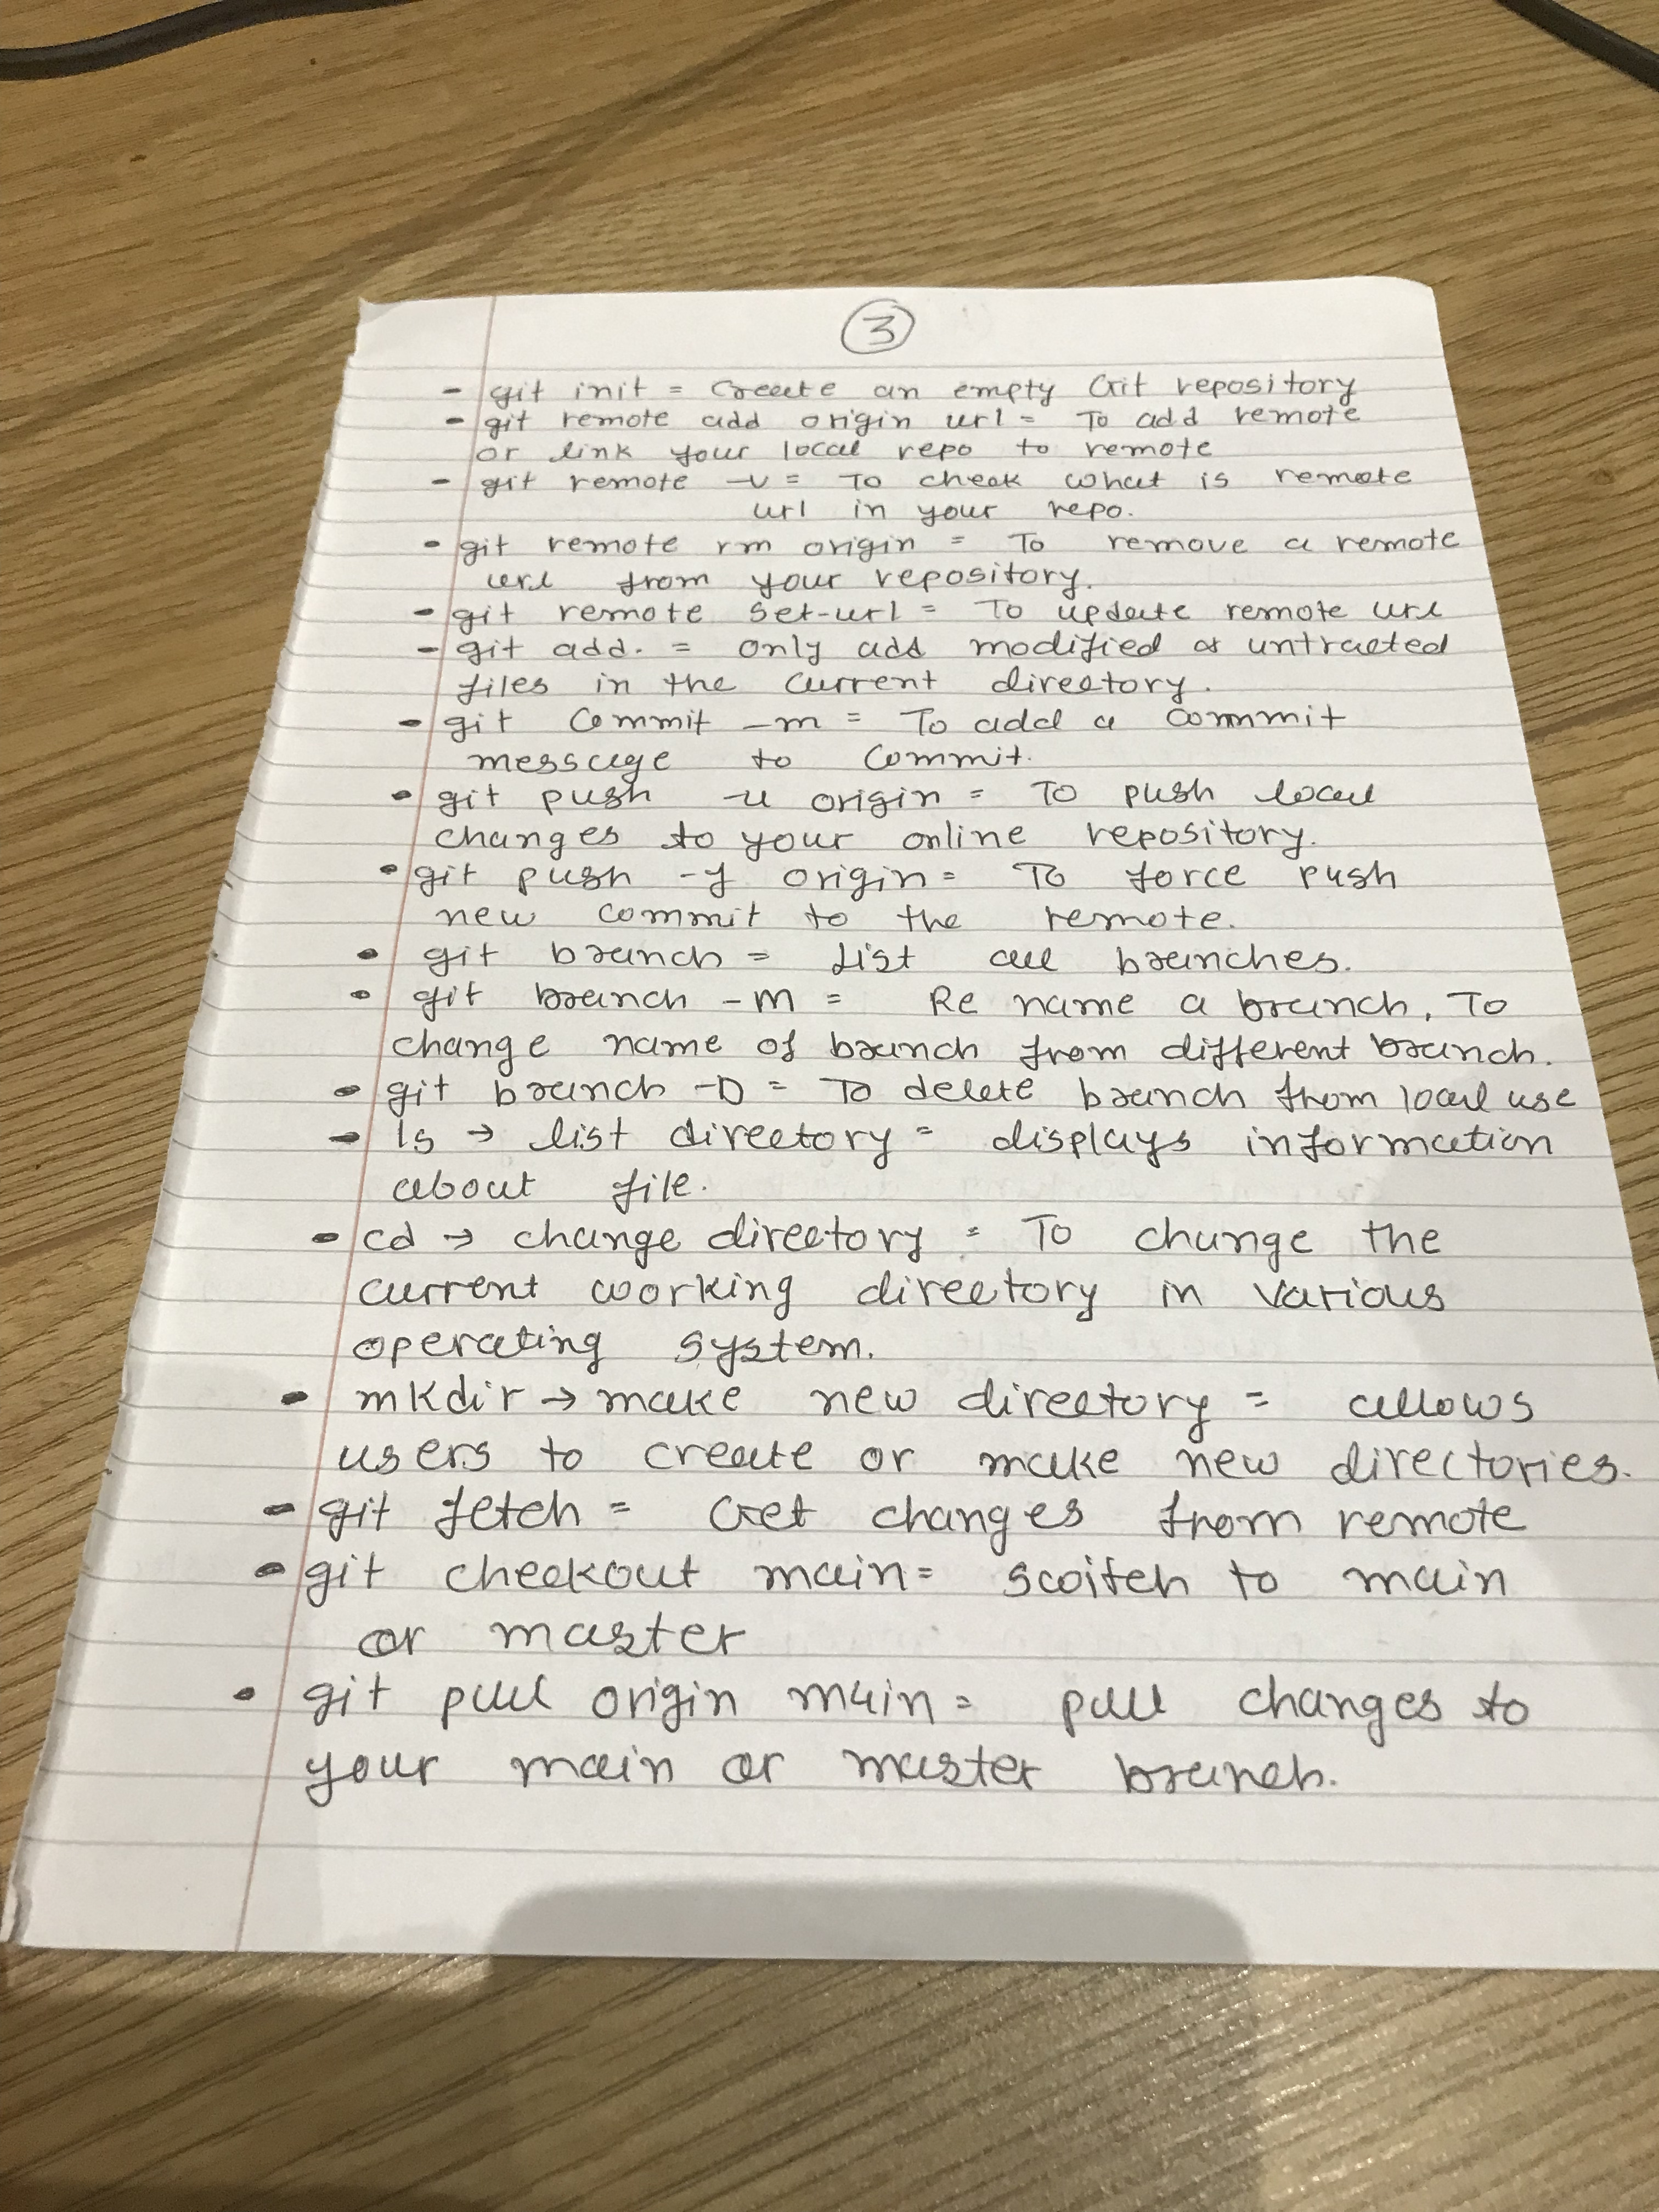 3
- git init = Create an empty Git repository
- git remote add origin url = To add remote
or link your local repo to remote
- git remote -v = To check what is remote
url in your repo.
- git remote rm origin = To remove a remote
url from your repository.
- git remote set-url = To update remote url
- git add. = only add modified or untracted
files in the current directory.
- git commit -m = To add a commit
message to commit.
• git push -u origin = To push local
changes to your online repository.
• git push -f origin = To force push
new commit to the remote.
• git branch = List all branches.
• git branch -m = Re name a branch, To
change name of branch from different branch.
• git branch -D = To delete branch from local use
- ls → list directory = displays information
about file.
- cd → change directory = To change the
current working directory in various
operating system.
• mkdir → make new directory = allows
users to create or make new directories.
- git fetch = Get changes from remote
• git checkout main = switch to main
or master
• git pull origin main = pull changes to
your main or master branch.